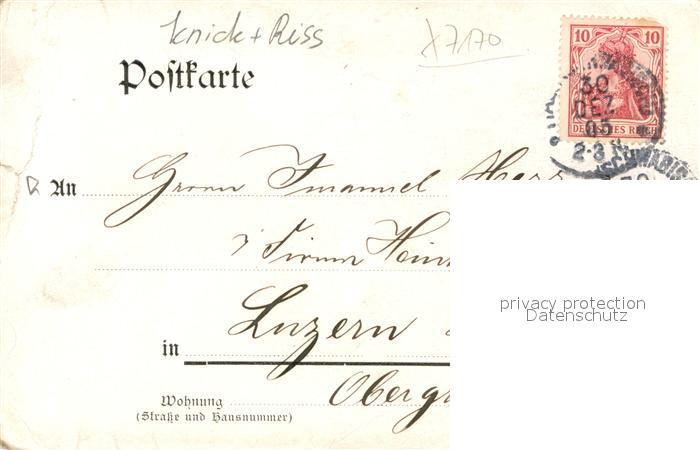 Knick + Riss
X7170
Postkarte
10 10
DEUTSCHES REICH
30
DEZ
03
2-3 N.
An Herrn Immanuel
i/ Firma
in Luzern
Obergr
Wohnung
(Straße und Hausnummer)
privacy protection
Datenschutz